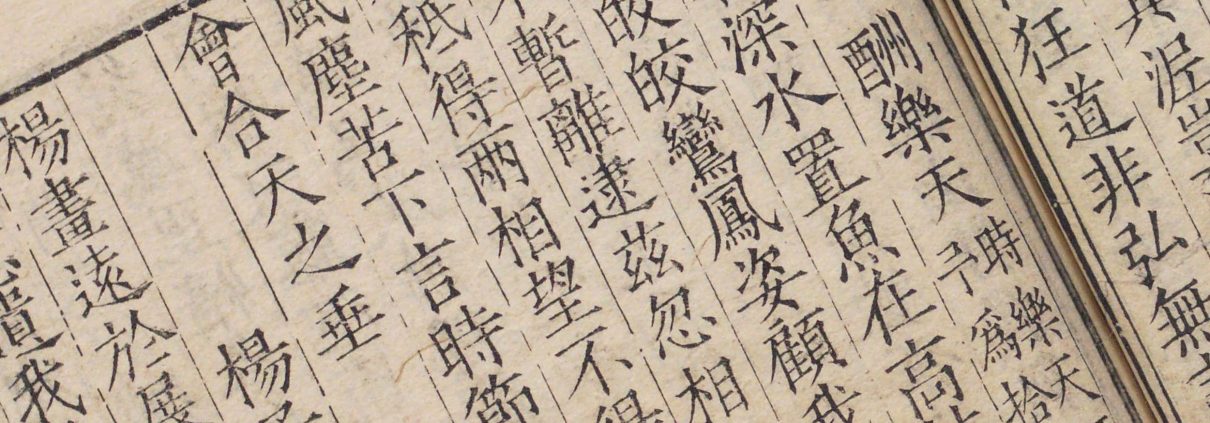 狂道非弘無
酬樂天 時樂天
予爲拾
深水置魚在高
皎皎鸞鳳姿顧我
暫離逮兹忽相
秖得兩相望不得
風塵苦下言時節
會合天之垂
楊子
楊畫遠於展
我